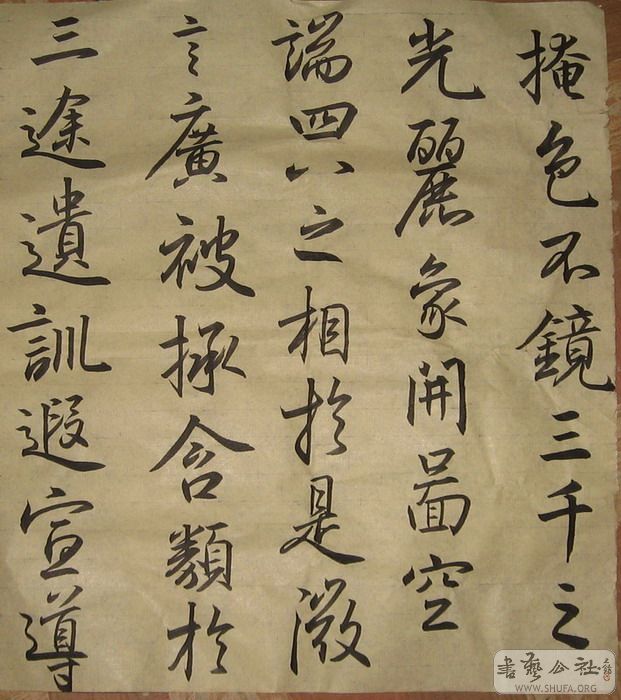 掩色不鏡三千之
光麗象開圖空
端四八之相於是微
言廣被拯含類於
三途遺訓遐宣導
書藝公社
WWW.SHUFA.ORG